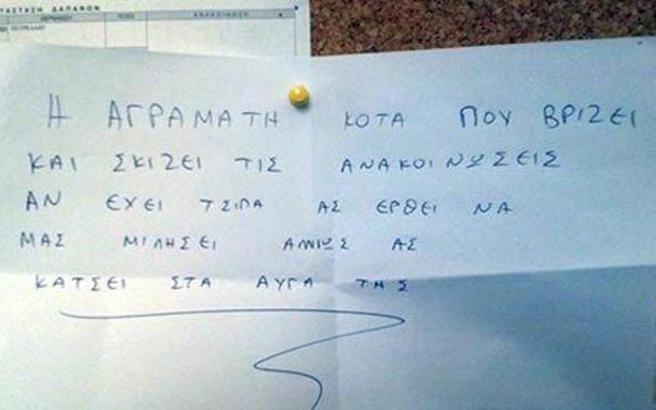 ΤΑΣΤΑΣΗ ΔΑΠΑΝΩΝ
ΑΝΑΚΟΙΝΩΣΗ
Η ΑΓΡΑΜΑΤΗ ΚΟΤΑ ΠΟΥ ΒΡΙΖΕΙ
ΚΑΙ ΣΚΙΖΕΙ ΤΙΣ ΑΝΑΚΟΙΝΩΣΕΙΣ
ΑΝ ΕΧΕΙ ΤΣΙΠΑ ΑΣ ΕΡΘΕΙ ΝΑ
ΜΑΣ ΜΙΛΗΣΕΙ ΑΛΛΙΩΣ ΑΣ
ΚΑΤΣΕΙ ΣΤΑ ΑΥΓΑ ΤΗΣ